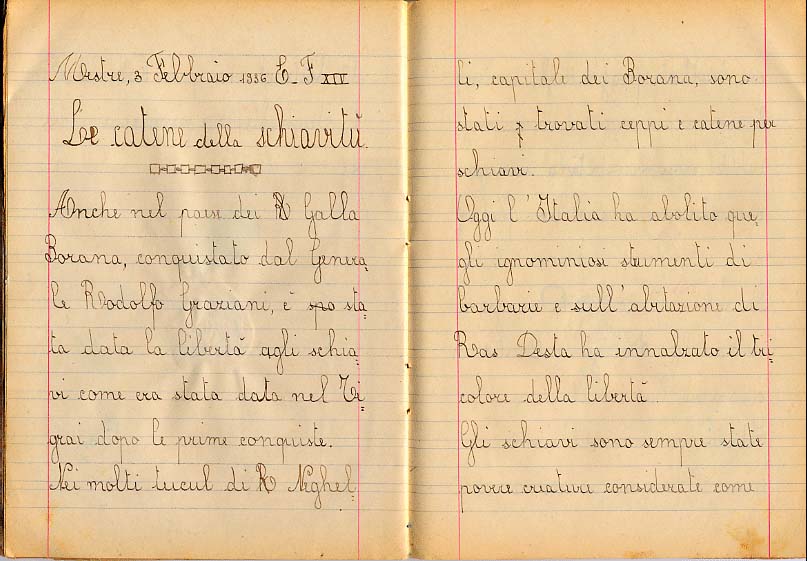 Mestre, 3 Febbraio 1936 E. F XIV
Le catene della schiavitù.
Anche nel paese dei R Galla
Borana, conquistato dal Genera=
le Rodolfo Graziani, è spo sta=
ta data la libertà agli schia=
vi come era stata data nel Ti=
grai dopo le prime conquiste.
Nei molti tucul di R Neghel=
li, capitale dei Borana, sono
stati trovati ceppi e catene per
schiavi.
Oggi l'Italia ha abolito que=
gli ignominiosi strumenti di
barbarie e sull'abitazione di
Ras Desta ha innalzato il tri=
colore della libertà
Gli schiavi sono sempre state
povere creature considerate come